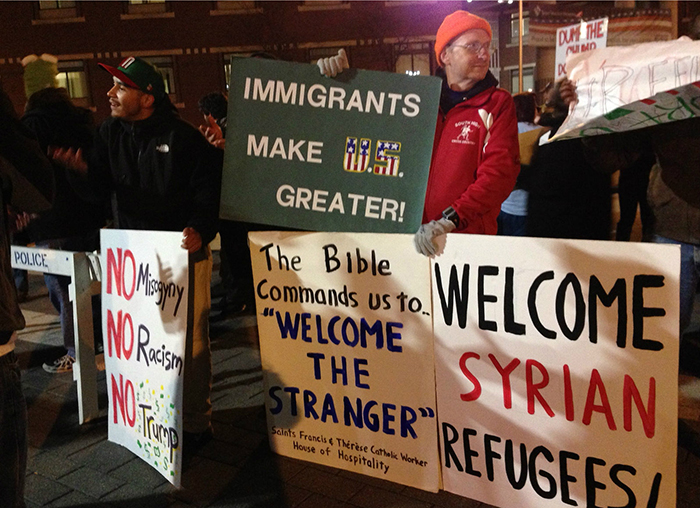 DUMP THE
CHUMP
IMMIGRANTS
MAKE U.S.
GREATER!
SOUTH HIGH
POLICE
NO Misogyny
NO Racism
NO Trump
The Bible
Commands us to..
"WELCOME
THE
STRANGER"
Saints Francis & Thérèse Catholic Worker
House of Hospitality
WELCOME
SYRIAN
REFUGEES!